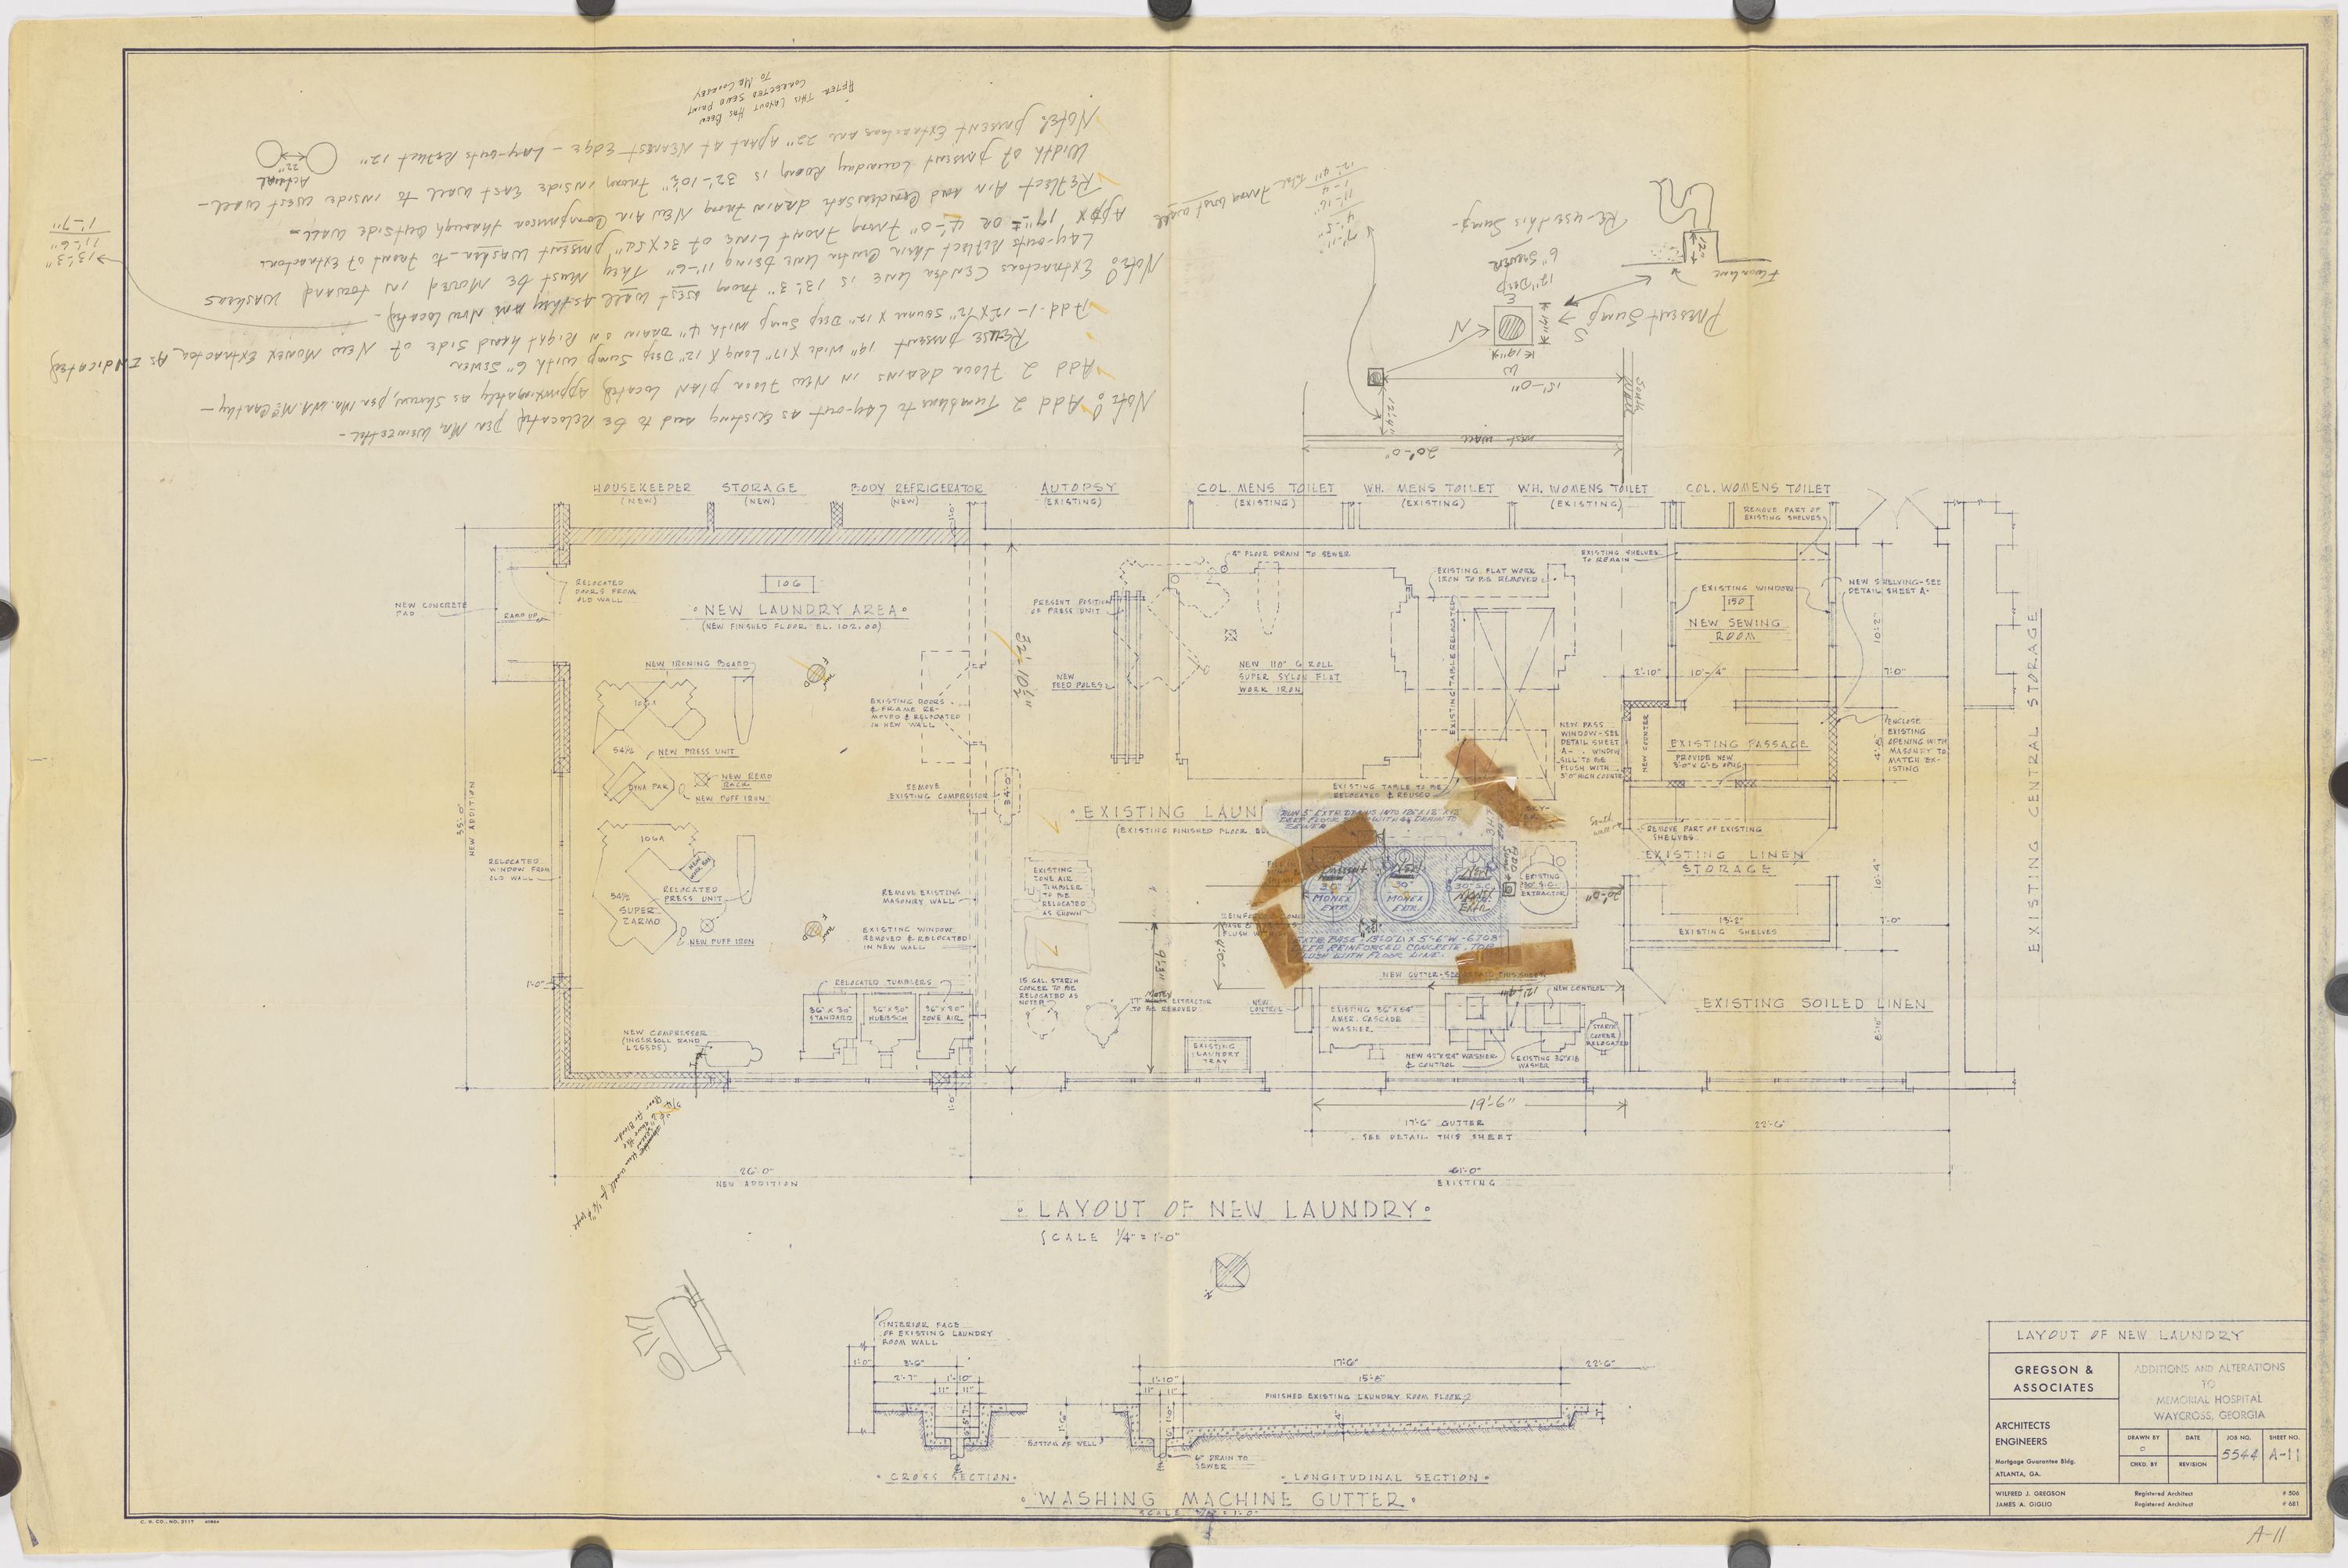 AFTER THIS LAYOUT HAS BEEN
CORRECTED SEND PRINT
TO MR COURSEY
Note: Add 2 Tumblers to Lay-out as Existing and to be Relocated per Mr. Weinzettel-
Add 2 Floor drains in New Floor plan located Approximately as Shown, per Mr. Wm. McCarthy-
Reuse present 14" Wide X 17" Long X 12" Deep Sump with 6" Sewer
Add-1-12"X12" Square X 12" Deep Sump with 4" Drain on Right hand side of New Monex Extractor As Indicated
Note: Extractors Center Line is 13'-3" From West Wall As they are Now Located-
Lay-outs Reflect their Center Line being 11'-6" They Must be Moved in toward Washers
Appx 17"± OR 4'-0" From Front Line of 36X54" present Washer-to-Front of Extractors
Reflect Air and Condensate drain From New Air Compressor through Outside Wall-
Width of present Laundry Room is 32'-10½" From inside East Wall to inside West Wall-
Note: present Extractors are 22" Apart at Nearest Edge - Lay-outs Reflect 12"
22"
Actual
13'-3"
11'-6"
1'-7"
Present Sump
Floor line
12"
Re-use This Sump-
12" Deep
6" Sewer
N
S
E
W
14"
15'-0"
12'-4"
South Wall
West Wall
20'-0"
12'-4" Total From West Wall
HOUSEKEEPER
(NEW)
STORAGE
(NEW)
BODY REFRIGERATOR
(NEW)
AUTOPSY
(EXISTING)
COL. MENS TOILET
(EXISTING)
WH. MENS TOILET
(EXISTING)
WH. WOMENS TOILET
(EXISTING)
COL. WOMENS TOILET
REMOVE PART OF
EXISTING SHELVES
EXISTING SHELVES
TO REMAIN
4" FLOOR DRAIN TO SEWER
EXISTING FLAT WORK
IRON TO BE REMOVED
RELOCATED
DOORS FROM
OLD WALL
NEW CONCRETE
PAD
RAMP UP
106
NEW LAUNDRY AREA
(NEW FINISHED FLOOR EL. 102.00)
PRESENT POSITION
OF PRESS UNIT
EXISTING WINDOW
150
NEW SEWING
ROOM
NEW SHELVING-SEE
DETAIL SHEET A-
10'-2"
NEW IRONING BOARD
106A
54½
NEW PRESS UNIT
DYNA PAK
NEW REMO
RACK
NEW PUFF IRON
EXISTING DOORS
& FRAME RE-
MOVED & RELOCATED
IN NEW WALL
32'-10½"
NEW
FEED POLES
NEW 110" 6 ROLL
SUPER SYLON FLAT
WORK IRON
EXISTING TABLE RELOCATED
2'-10"
10'-4"
7'-0"
NEW PASS
WINDOW-SEE
DETAIL SHEET
A- . WINDOW
SILL TO BE
FLUSH WITH
3'-0" HIGH COUNTER
NEW COUNTER
EXISTING PASSAGE
PROVIDE NEW
ENCLOSE
EXISTING
OPENING WITH
MASONRY TO
MATCH EX-
ISTING
EXISTING CENTRAL STORAGE
REMOVE
EXISTING COMPRESSOR
34'-0"
EXISTING TABLE TO BE
RELOCATED & REUSED
EXISTING LAUN
(EXISTING FINISHED FLOOR EL
RUN 5" EXTR. DRAINS INTO 12"X12"X12"
DEEP FLOOR SUMP WITH 4" DRAIN TO
SEWER
South wall
REMOVE PART OF EXISTING
SHELVES
EXISTING LINEN
STORAGE
10'-4"
35'-0"
NEW ADDITION
106A
54½
SUPER
ZARMO
RELOCATED
PRESS UNIT
NEW PUFF IRON
RELOCATED
WINDOW FROM
OLD WALL
REMOVE EXISTING
MASONRY WALL
EXISTING WINDOW
REMOVED & RELOCATED
IN NEW WALL
EXISTING
ZONE AIR
TUMBLER
TO BE
RELOCATED
AS SHOWN
Present
30"
MONEX
EXTR.
30"
MONEX
EXTR.
New
30" S.C.
MONEX
EXTR.
ADD Sump
EXISTING
30" S.C.
EXTRACTOR
20'-0"
EXTR. BASE: 13'-0" L X 5'-6" W - 6 TO 8"
DEEP REINFORCED CONCRETE - TOP
FLUSH WITH FLOOR LINE.
13'-2"
EXISTING SHELVES
7'-0"
9'-3"
4'-0"
NEW GUTTER-SEE DETAIL THIS SHEET
12'-4"
NEW CONTROL
RELOCATED TUMBLERS
36" X 30"
STANDARD
36" X 30"
HUEBSCH
36" X 30"
ZONE AIR
15 GAL. STARCH
COOKER TO BE
RELOCATED AS
NOTED
17" EXTRACTOR
TO BE REMOVED
NEW
CONTROL
EXISTING 36"X54"
AMER. CASCADE
WASHER
STARCH
COOKER
RELOCATED
EXISTING SOILED LINEN
NEW COMPRESSOR
(INGERSOLL RAND
L253D5)
EXISTING
LAUNDRY
TRAY
NEW 42"X24" WASHER
& CONTROL
EXISTING 36"X18
WASHER
1'-0"
19'-6"
17'-6" GUTTER
SEE DETAIL THIS SHEET
22'-6"
26'-0"
NEW ADDITION
61'-0"
EXISTING
LAYOUT OF NEW LAUNDRY
SCALE ¼" = 1'-0"
INTERIOR FACE
OF EXISTING LAUNDRY
ROOM WALL
1'-0"
3'-6"
2'-7"
1'-10"
11"
11"
BOTTOM OF WELL
17'-6"
22'-6"
1'-10"
15'-8"
11"
11"
FINISHED EXISTING LAUNDRY ROOM FLOOR
6" DRAIN TO
SEWER
CROSS SECTION
LONGITUDINAL SECTION
WASHING MACHINE GUTTER
LAYOUT OF NEW LAUNDRY
GREGSON &
ASSOCIATES
ARCHITECTS
ENGINEERS
Mortgage Guarantee Bldg.
ATLANTA, GA.
ADDITIONS AND ALTERATIONS
TO
MEMORIAL HOSPITAL
WAYCROSS, GEORGIA
DRAWN BY
DATE
JOB NO.
SHEET NO.
5544
A-11
CHKD. BY
REVISION
WILFRED J. GREGSON Registered Architect # 506
JAMES A. GIGLIO Registered Architect # 681
C. B. CO., NO. 3117
A-11